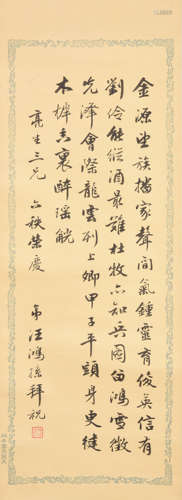 金源望族播家聲間氣鍾靈育俊英信有
劉伶能縱酒最難杜牧亦知兵圖留鴻雪徵
先澤會際龍雲列上卿甲子平頭身更健
木樨香裏醉瑤觥
亮生三兄 六秩榮慶
弟汪鴻孫拜祝